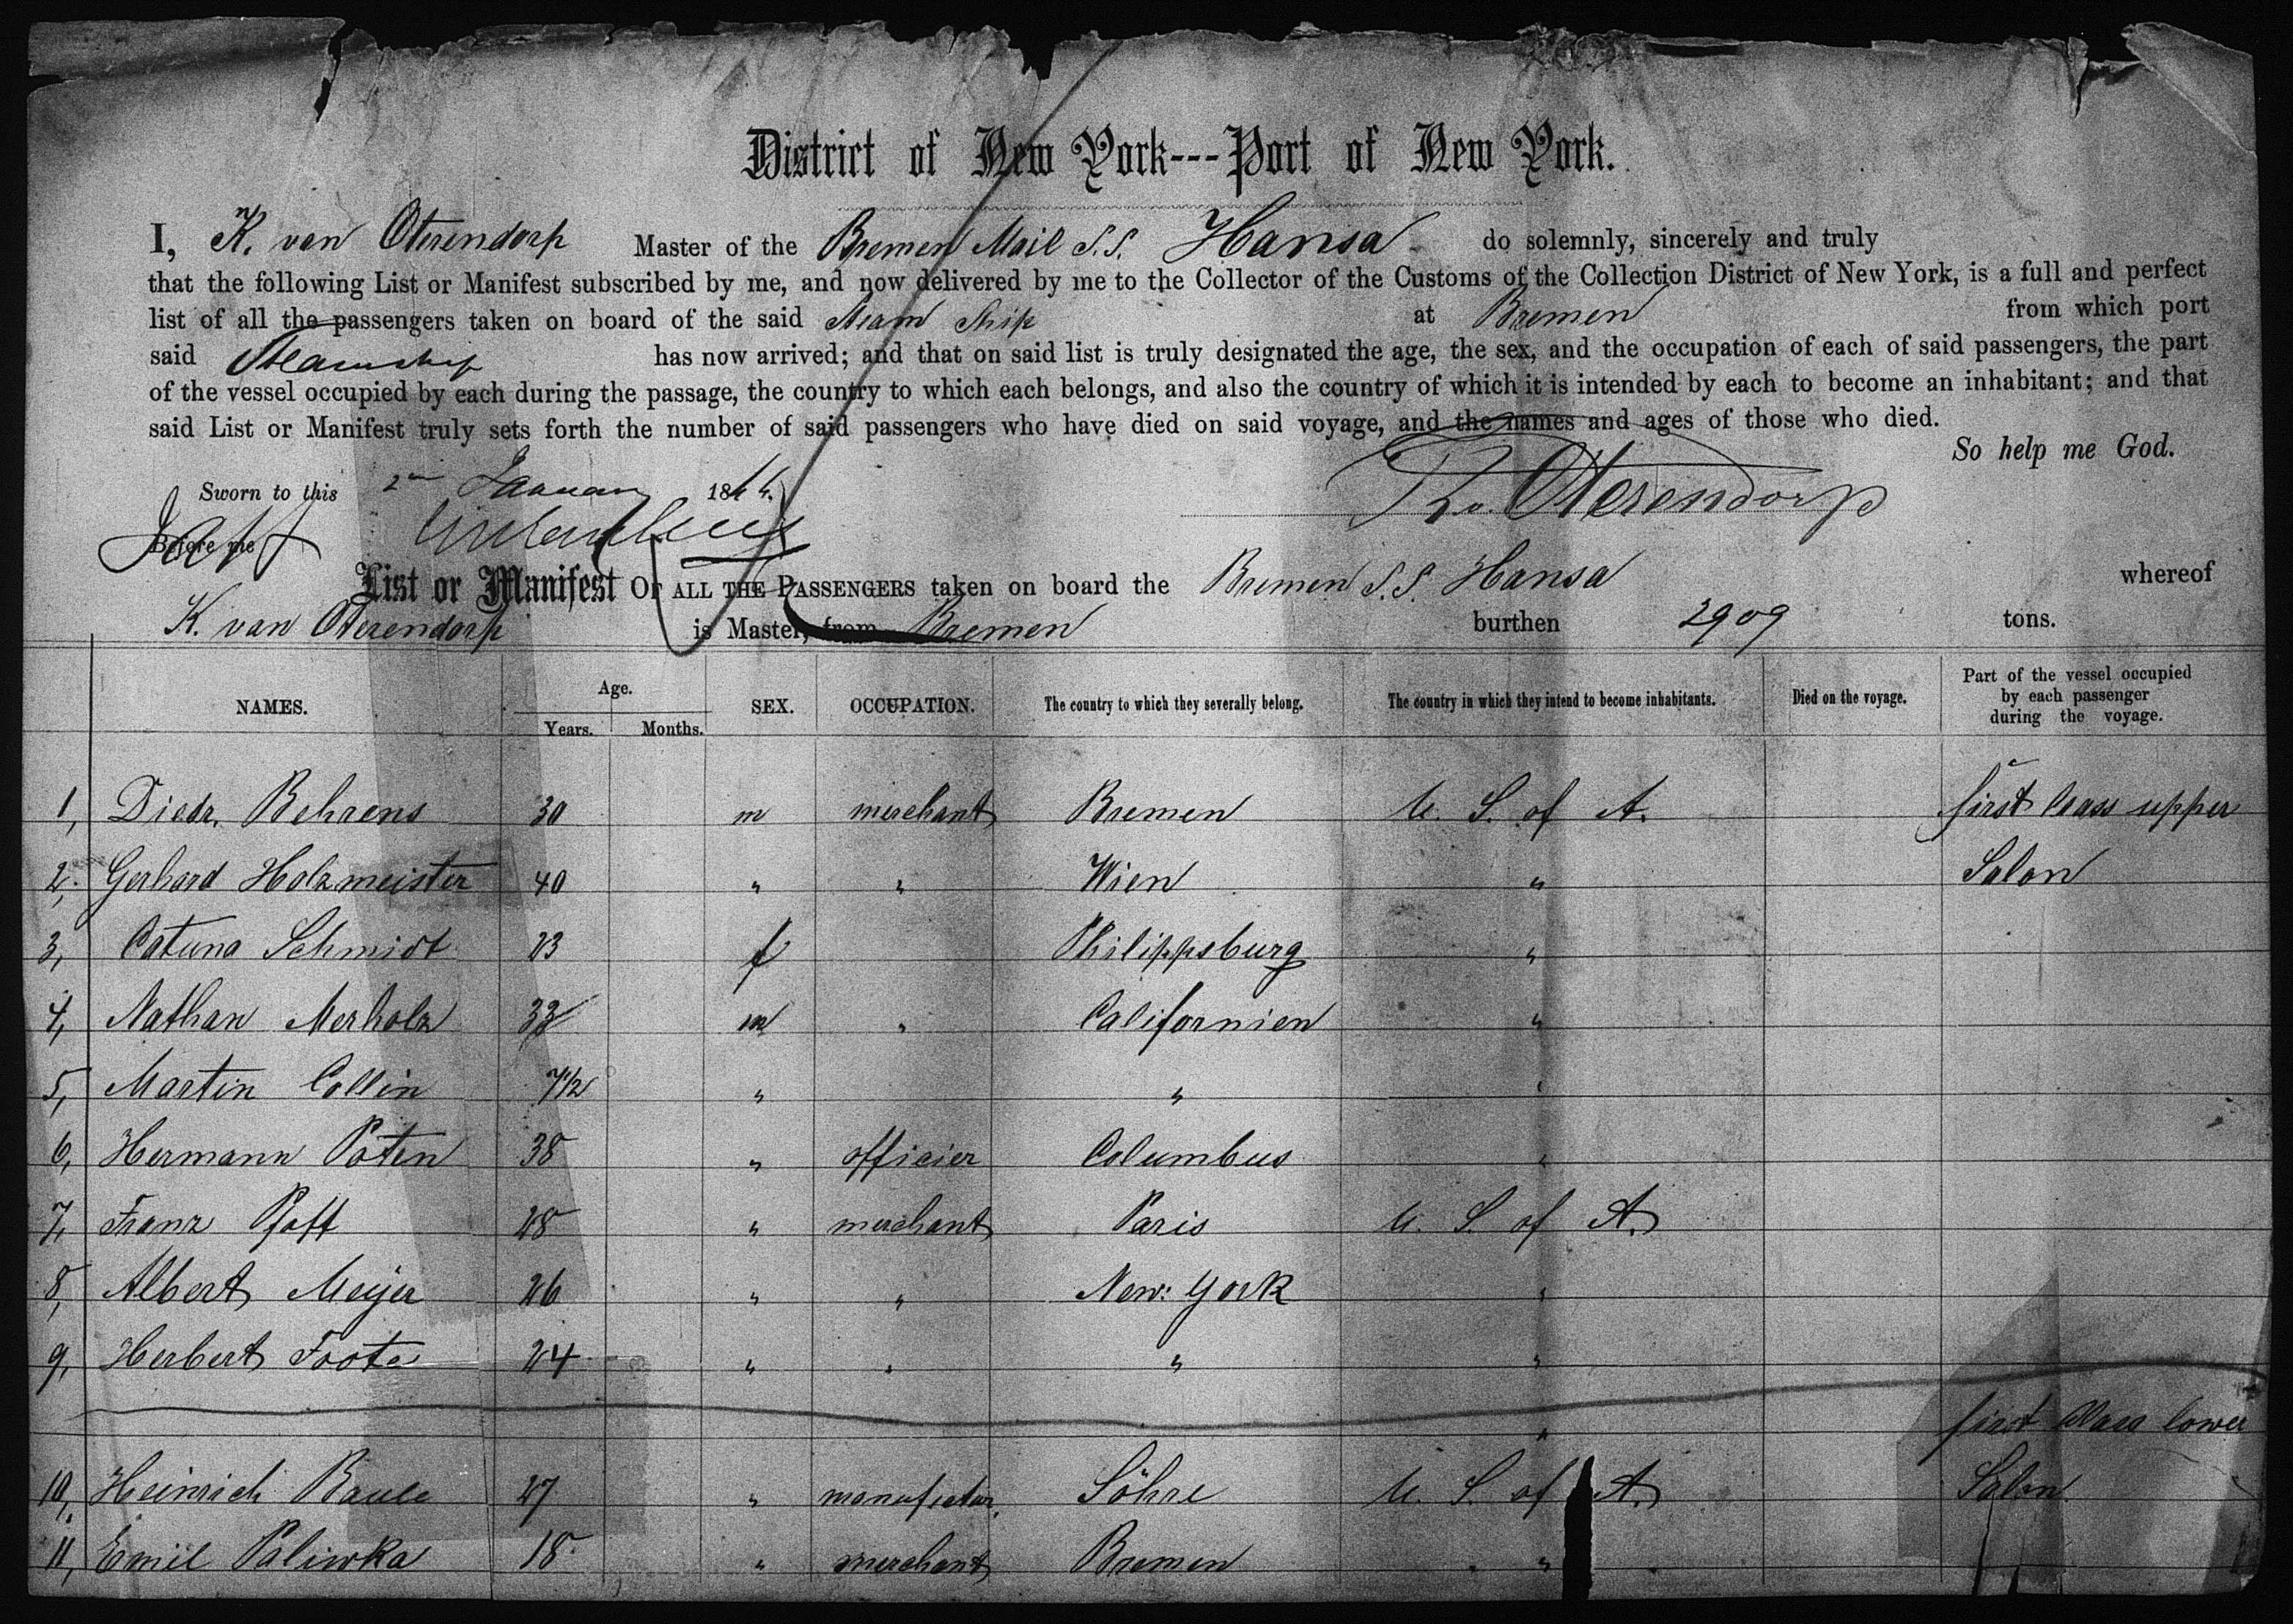 District of New York---Port of New York.
I, K. van Oterendorp Master of the Bremen Mail S.S. Hansa do solemnly, sincerely and truly
that the following List or Manifest subscribed by me, and now delivered by me to the Collector of the Customs of the Collection District of New York, is a full and perfect
list of all the passengers taken on board of the said Steam Ship at Bremen from which port
said Steamship has now arrived; and that on said list is truly designated the age, the sex, and the occupation of each of said passengers, the part
of the vessel occupied by each during the passage, the country to which each belongs, and also the country of which it is intended by each to become an inhabitant; and that
said List or Manifest truly sets forth the number of said passengers who have died on said voyage, and the names and ages of those who died.
So help me God.
Sworn to this 2 January 186
K v. Oterendorp
Before me
List or Manifest OF ALL THE PASSENGERS taken on board the Bremen S.S. Hansa whereof
K. van Oterendorp is Master, from Bremen burthen 2909 tons.
NAMES. Age. Years. Months. SEX. OCCUPATION. The country to which they severally belong. The country in which they intend to become inhabitants. Died on the voyage. Part of the vessel occupied by each passenger during the voyage.
1, Diedr. Behrens 30 m merchant Bremen U. S. of A. first upper
2, Gerhard Holzmeister 40 " " Wien " Salon
3, Schmidt 23 f Philippsburg "
4, Nathan Merholz 33 m " Californien "
5, Martin Collin 7 1/2 " " "
6, Hermann Poten 38 " officier Columbus "
7, Franz Pfaff 28 " merchant Paris U. S. of A.
8, Albert Meyer 26 " " New: York "
9, Herbert Foote 24 " " " "
" first Class lower
10, Heinrich Baule 27 " Söhre U. S. of A. Salon
11, Emil Paliwka 18 " merchant Bremen "